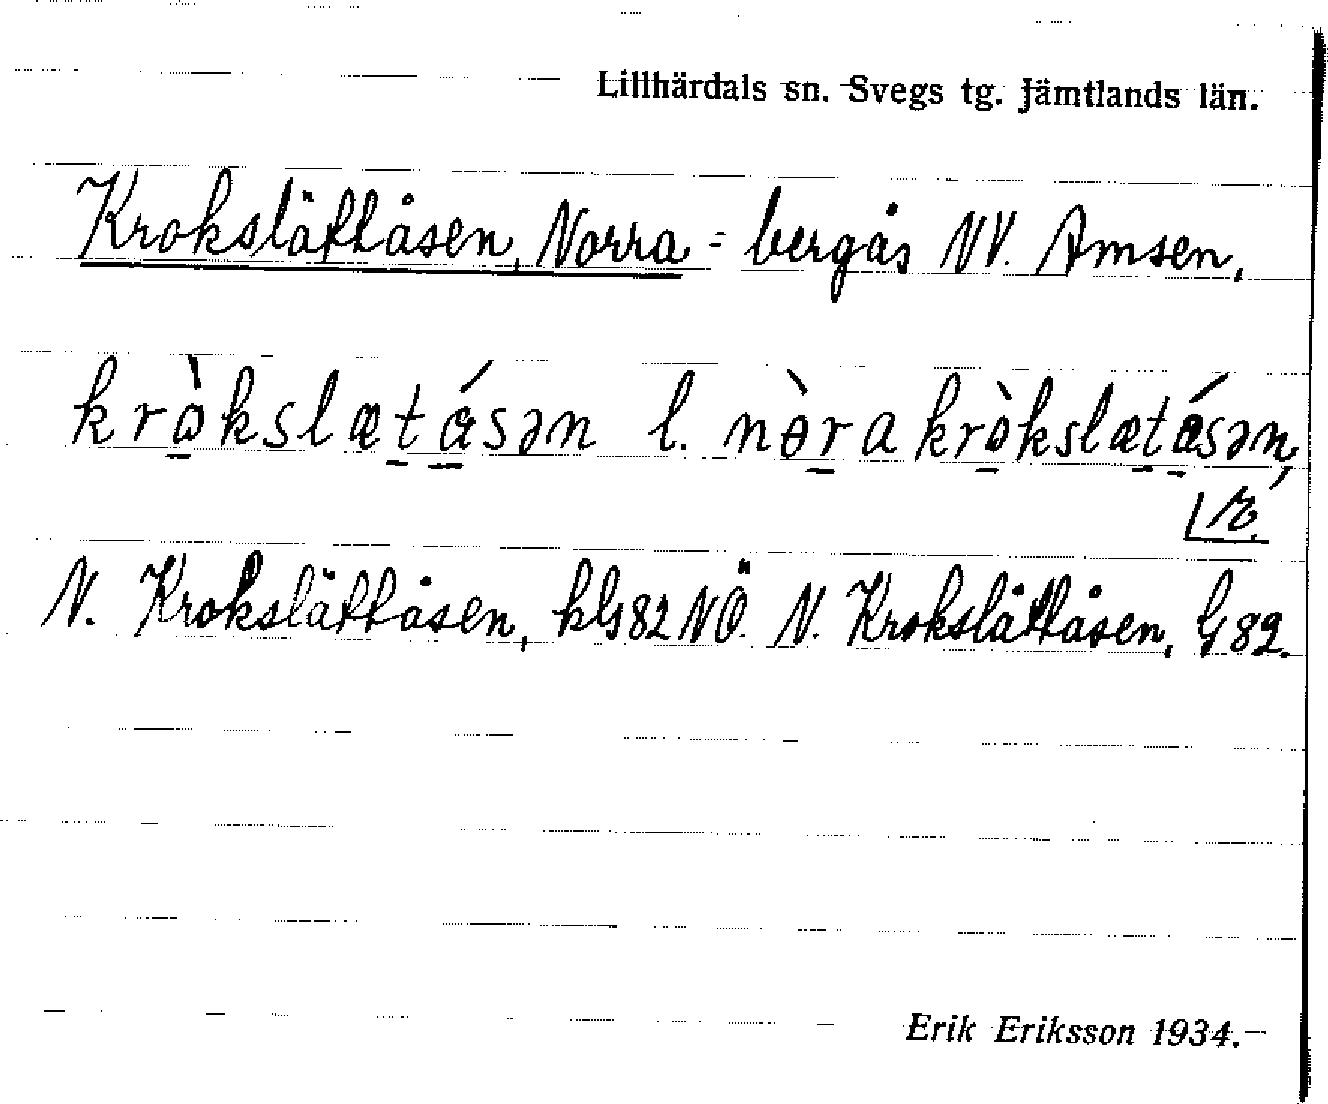 Lillhärdals sn. Svegs tg. Jämtlands län.
Krokslättåsen, Norra = bergås NV. Amsen,
kròkslætásən l. nòra kròkslætásən,
N. Krokslättåsen, kG82NÖ. N. Krokslåttåsen, G82.
Erik Eriksson 1934.—